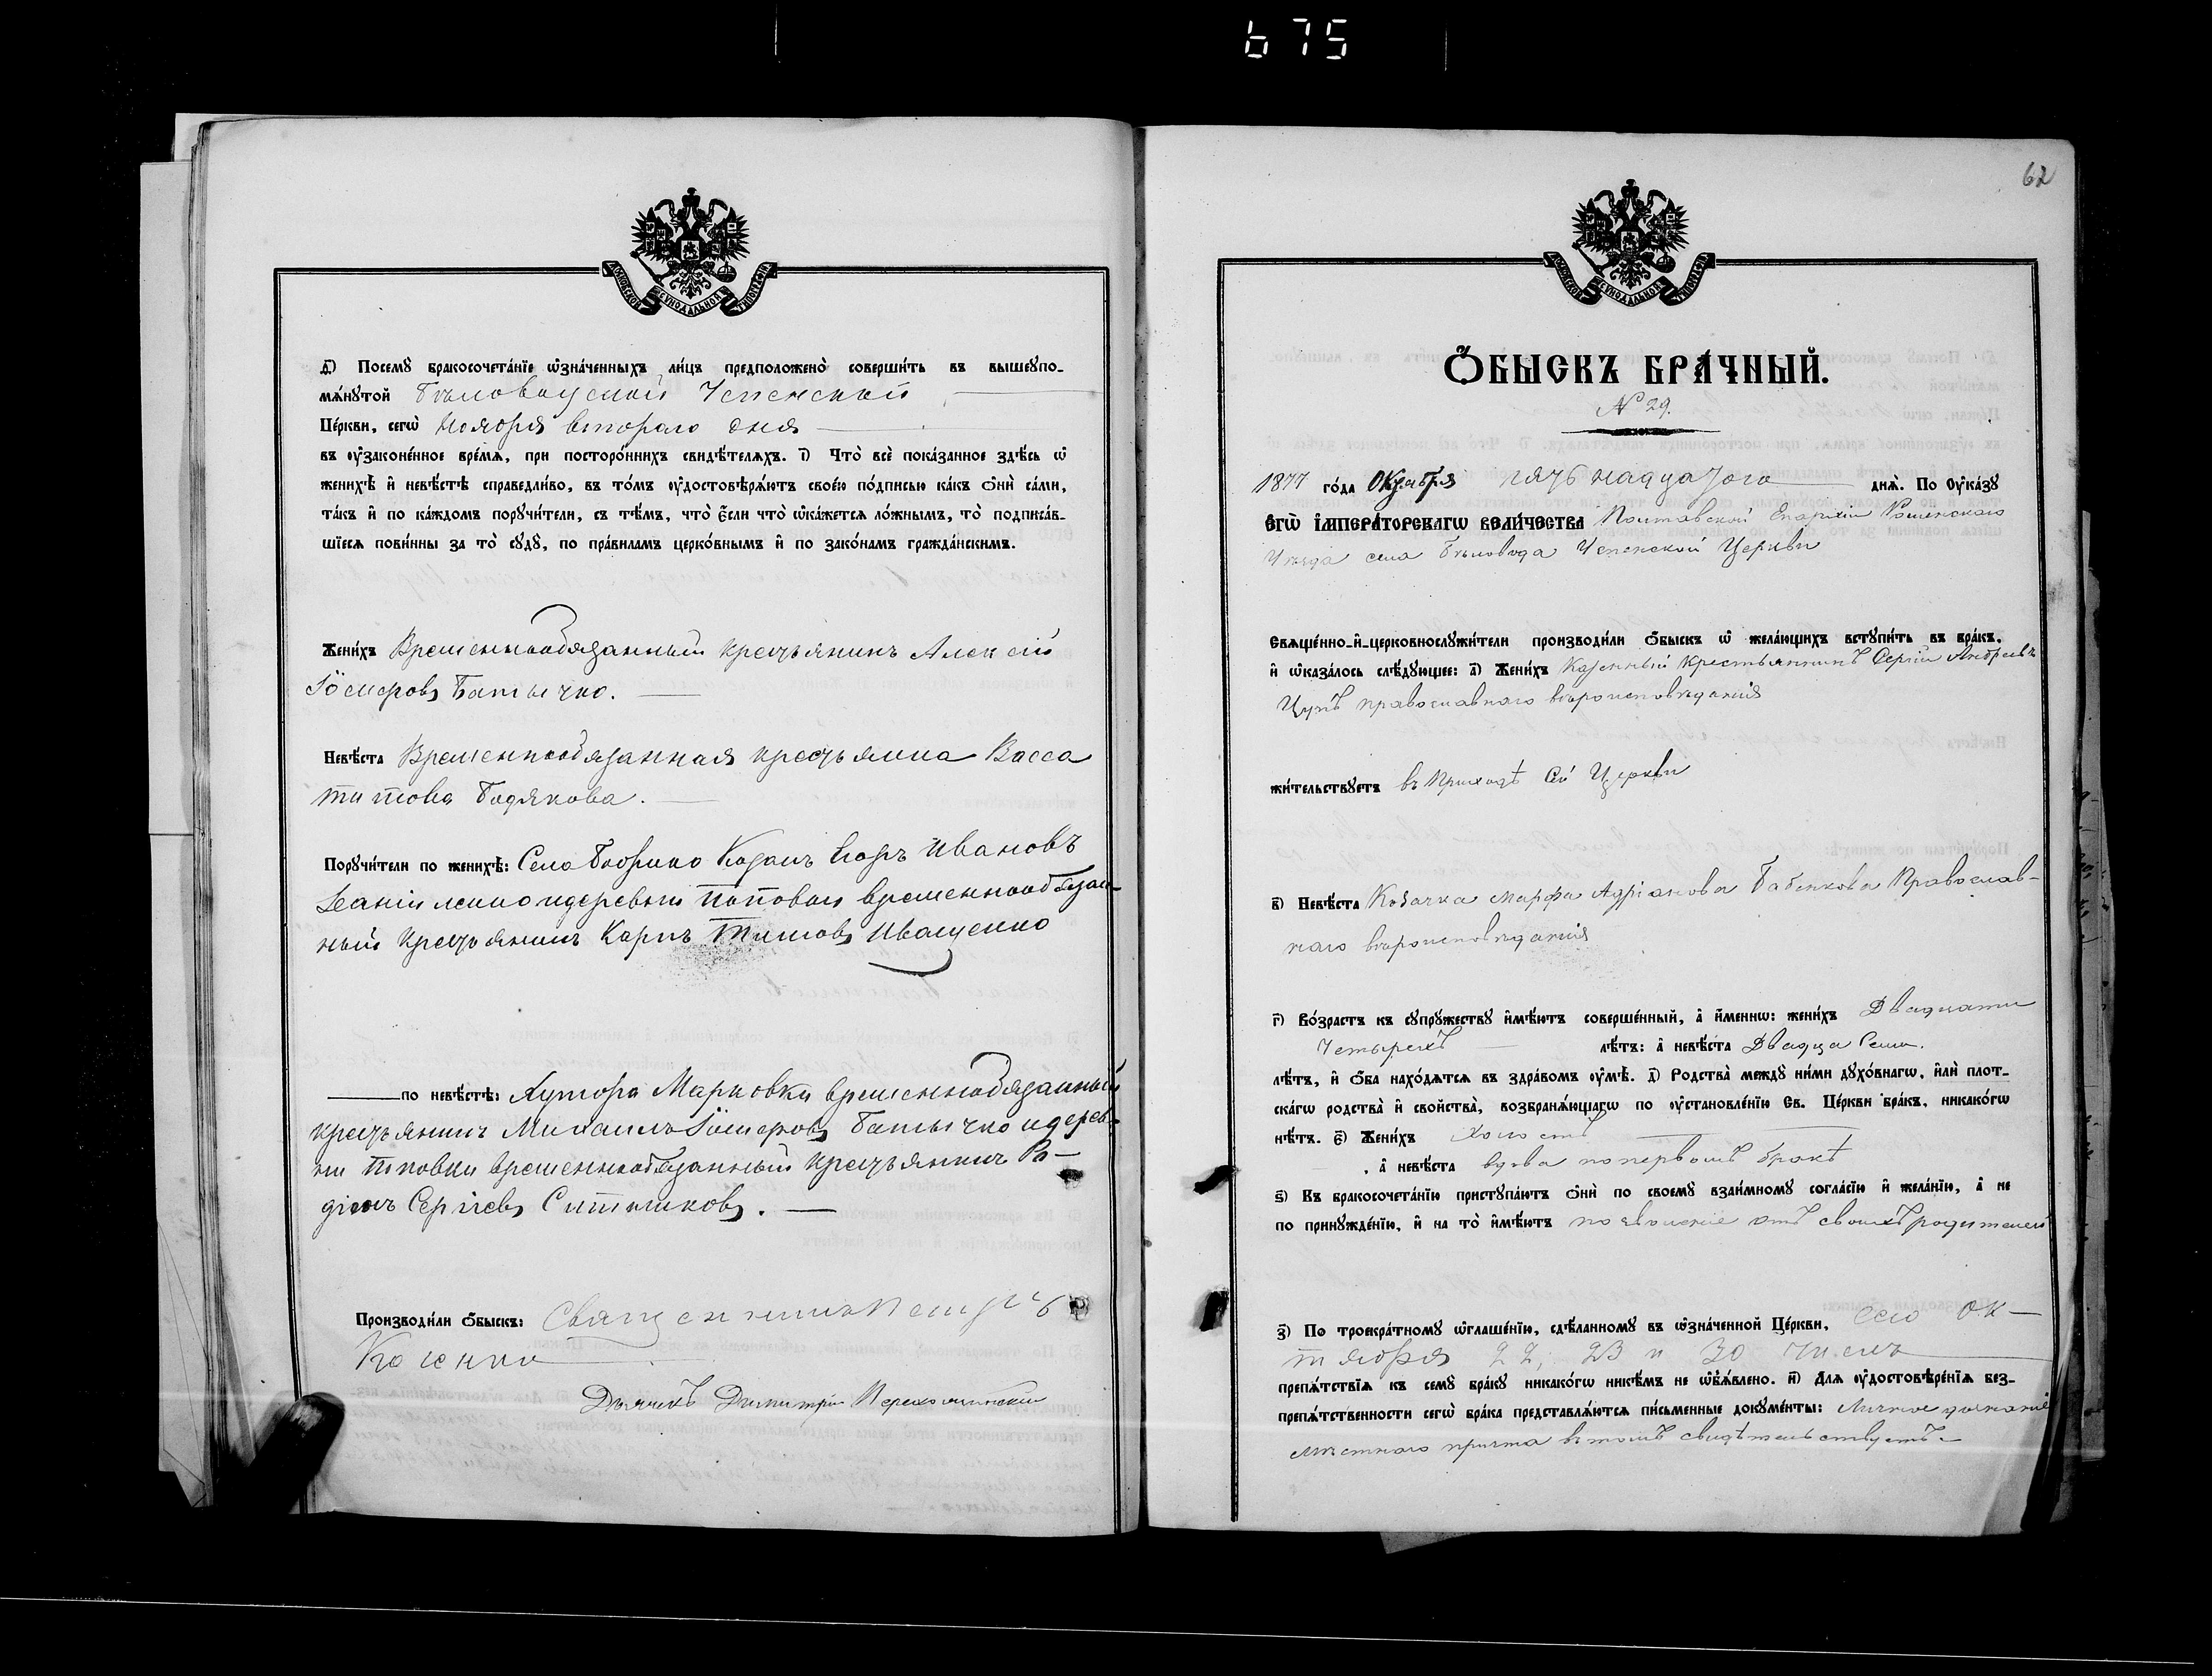 675
МОСКОВСКОЙ СѴНОДАЛЬНОЙ ТИПОГРАФІИ
д҃) Посемꙋ бракосочета́нїе ѡ҆зна́ченныхъ ли́цъ предположено̀ соверши́ть въ вышеꙋпо-
мѧ́нꙋтой Бѣловодской Успенской
Це́ркви, сегѡ̀ Ноября второго дня
въ ᲂу҆законе́нное вре́мѧ, при посторо́ннихъ свидѣ́телѧхъ. і҃) Что̀ всѐ пока́занное здѣ́сь ѡ҆
женихѣ̀ и҆ невѣ́стѣ справедли́во, въ то́мъ ᲂу҆достовѣрѧ́ютъ свое́ю по́дписью ка́къ ѻ҆нѝ са́ми,
та́къ и҆ по ка́ждомъ порꙋчи́тели, съ тѣ́мъ, что̀ є҆́сли что̀ ѡ҆ка́жетсѧ ло́жнымъ, то̀ подписа́в-
шїесѧ пови́нны за то̀ сꙋдꙋ̀, по пра́виламъ церко́внымъ и҆ по зако́намъ гражда́нскимъ.
Жени́хъ Временнообязанный крестьянинъ Алексій
Батычко.
Невѣ́ста Временнообязанная крестьянка Васса
Титова Бодякова.
Порꙋчи́тели по женихѣ̀: Села Бобрика Козакъ Егоръ Ивановъ
идеревни Поповки временнообязан-
ный крестьянинъ Карпъ Титовъ Иващенко
по невѣ́стѣ: Хутора Марковки временнообязанный
крестьянинъ Михаилъ Батычко идерев-
ни Поповки временнообязанный крестьянинъ Ро-
діонъ Сергіевъ Ситниковъ.
Производи́ли ѻ҆́быскъ: Священникъ Петръ
Дьячекъ Димитрій
62
МОСКОВСКОЙ СѴНОДАЛЬНОЙ ТИПОГРАФІИ
Ѻ҆́БЫСКЪ БРА́ЧНЫЙ.
№ 29.
1877 го́да Октября пятьнадцатого днѧ̀. По Оу҆ка́зꙋ
Є҆гѡ̀ І҆мпера́торскагѡ Вели́чества Полтавской Епархіи Роменского
Уѣзда села Бѣловода Успенской Церкви
Свѧще́нно-и҆-церковнослꙋжи́тели производи́ли ѻ҆́быскъ ѡ҆ жела́ющихъ встꙋпи́ть въ бра́къ,
и҆ ѡ҆каза́лось слѣ́дꙋющее: а҃) Жени́хъ Казенный крестьянинъ Сергій Андреевъ
Цупъ православнаго вѣроисповѣданія
жи́тельствꙋетъ въ Приходѣ сей Церкви
в҃) Невѣ́ста Козачка Марфа Адріанова Бабенкова Православ-
наго вѣроисповѣданія
г҃) Во́зрастъ къ сꙋпрꙋ́жествꙋ и҆мѣ́ютъ соверше́нный, а҆ и҆́меннѡ: жени́хъ Двадцати
Четырехъ лѣ́тъ: а҆ невѣ́ста Двадца Семи.
лѣ́тъ, и҆ ѻ҆́ба нахо́дѧтсѧ въ здра́вомъ ᲂу҆мѣ̀. д҃) Родства̀ междꙋ ни́ми дꙋхо́внагѡ, и҆лѝ плот-
ска́гѡ родства̀ и҆ свойства̀, возбранѧ́ющагѡ по ᲂу҆становле́нїю Св. Це́ркви бра́къ, никако́гѡ
нѣ́тъ. є҃) Жени́хъ Холостъ
а҆ невѣ́ста вдова попервомъ бракѣ
ѕ҃) Въ бракосочета́нїю пристꙋпа́ютъ ѻ҆нѝ по своемꙋ̀ взаи́мномꙋ согла́сїю и҆ жела́нїю, а҆ не
по принꙋжде́нїю, и҆ на то̀ и҆мѣ́ютъ позволеніе отъ своихъ родителей
з҃) По троекра́тномꙋ ѡ҆глаше́нїю, сдѣ́ланномꙋ въ ѡ҆зна́ченной Це́ркви, сего Ок-
тября 22, 23 и 30 чиселъ
препѧ́тствїѧ къ семꙋ̀ бра́кꙋ никако́гѡ никѣ́мъ не ѡ҆б̾ѧ́влено. и҃) Длѧ ᲂу҆достовѣ́ренїѧ без-
препѧ́тственности сегѡ̀ бра́ка представлѧ́ютсѧ пи́сьменные докꙋме́нты: Личное дознаніе
мѣстнаго причта въ томъ свидѣтельствуетъ